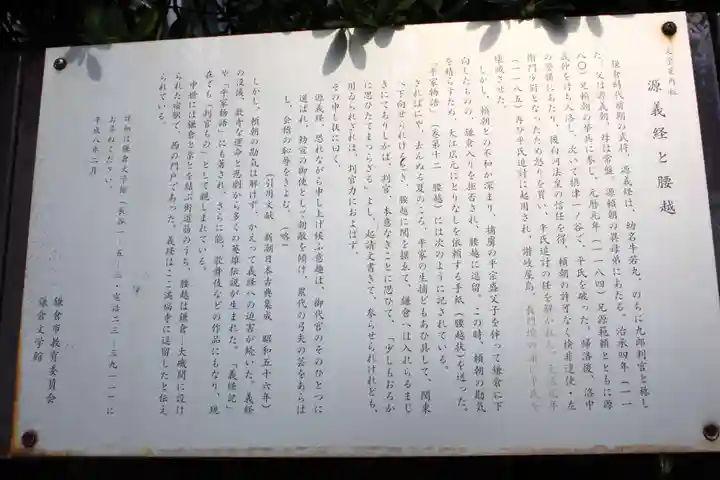 文学案内板
源義経と腰越
鎌倉時代前期の武将、源義経は、幼名牛若丸、のちに九郎判官と称し
た。父は源義朝、母は常盤。源頼朝の異母弟にあたる。治承四年（一一
八〇）兄頼朝の挙兵に参じ、元暦元年（一一八四）兄源範頼とともに源
義仲を討ち入洛し、次いで摂津一ノ谷で、平氏を破った。帰洛後、洛中
の警備にあたり、後白河法皇の信任を得、頼朝の許可なく検非違使・左
衛門少尉となったため怒りを買い、平氏追討の任を解かれ
（一一八五）再び平氏追討に起用され、讃岐屋島、長門壇
壊滅させた。
しかし、頼朝との不和が深まり、捕虜の平宗盛父子を伴って鎌倉に下
向したものの、鎌倉入りを拒否され、腰越に逗留。この時、頼朝の勘気
を晴らすため、大江広元にとりなしを依頼する手紙（腰越状）を送った。
『平家物語』（巻第十二 腰越）には次のように記されている。
さればにや、去んぬる夏のころ、平家の生捕どもあひ具して、関東
へ下向せられけるとき、腰越に関を据ゑて、鎌倉へは入れらるまじ
きにてありしかば、判官、本意なきことに思ひて、「少しもおろか
に思ひたてまつらざる」よし、起請文書きて、参らせられけれども、
用ゐられざれば、判官力におよばず。
その申し状に曰く、
源義経、恐れながら申し上げ候ふ意趣は、御代官のそのひとつに
選ばれ、勅宣の御使として朝敵を傾け、累代の弓矢の芸をあらは
し、会稽の恥辱をきよむ。（略）
（引用文献 新潮日本古典集成 昭和五十六年）
しかし、頼朝の勘気は解けず、かえって義経への迫害が続いた。義経
の没後、数奇な運命と悲劇から多くの英雄伝説が生まれた。『義経記』
や『平家物語』にも著され、さらに能、歌舞伎などの作品にもなり、現
在でも「判官もの」として親しまれている。
中世には鎌倉と京とを結ぶ街道筋のうち、腰越は鎌倉―大磯間に設け
られた宿駅で、西の門戸であった。義経はここ満福寺に逗留したと伝え
られている。
詳細は鎌倉文学館（長谷一―五―三・電話二三―三九一一）に
お尋ねください。
平成八年二月
鎌倉市教育委員会
鎌倉文学館